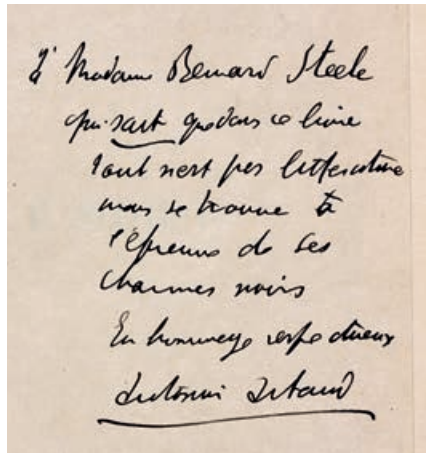 à Madame Bernard Steele
qui sait que dans ce livre
tout n'est pas littérature
mais se trouve à
l'épreuve de ses
charmes noirs
En hommage respectueux
Antonin Artaud